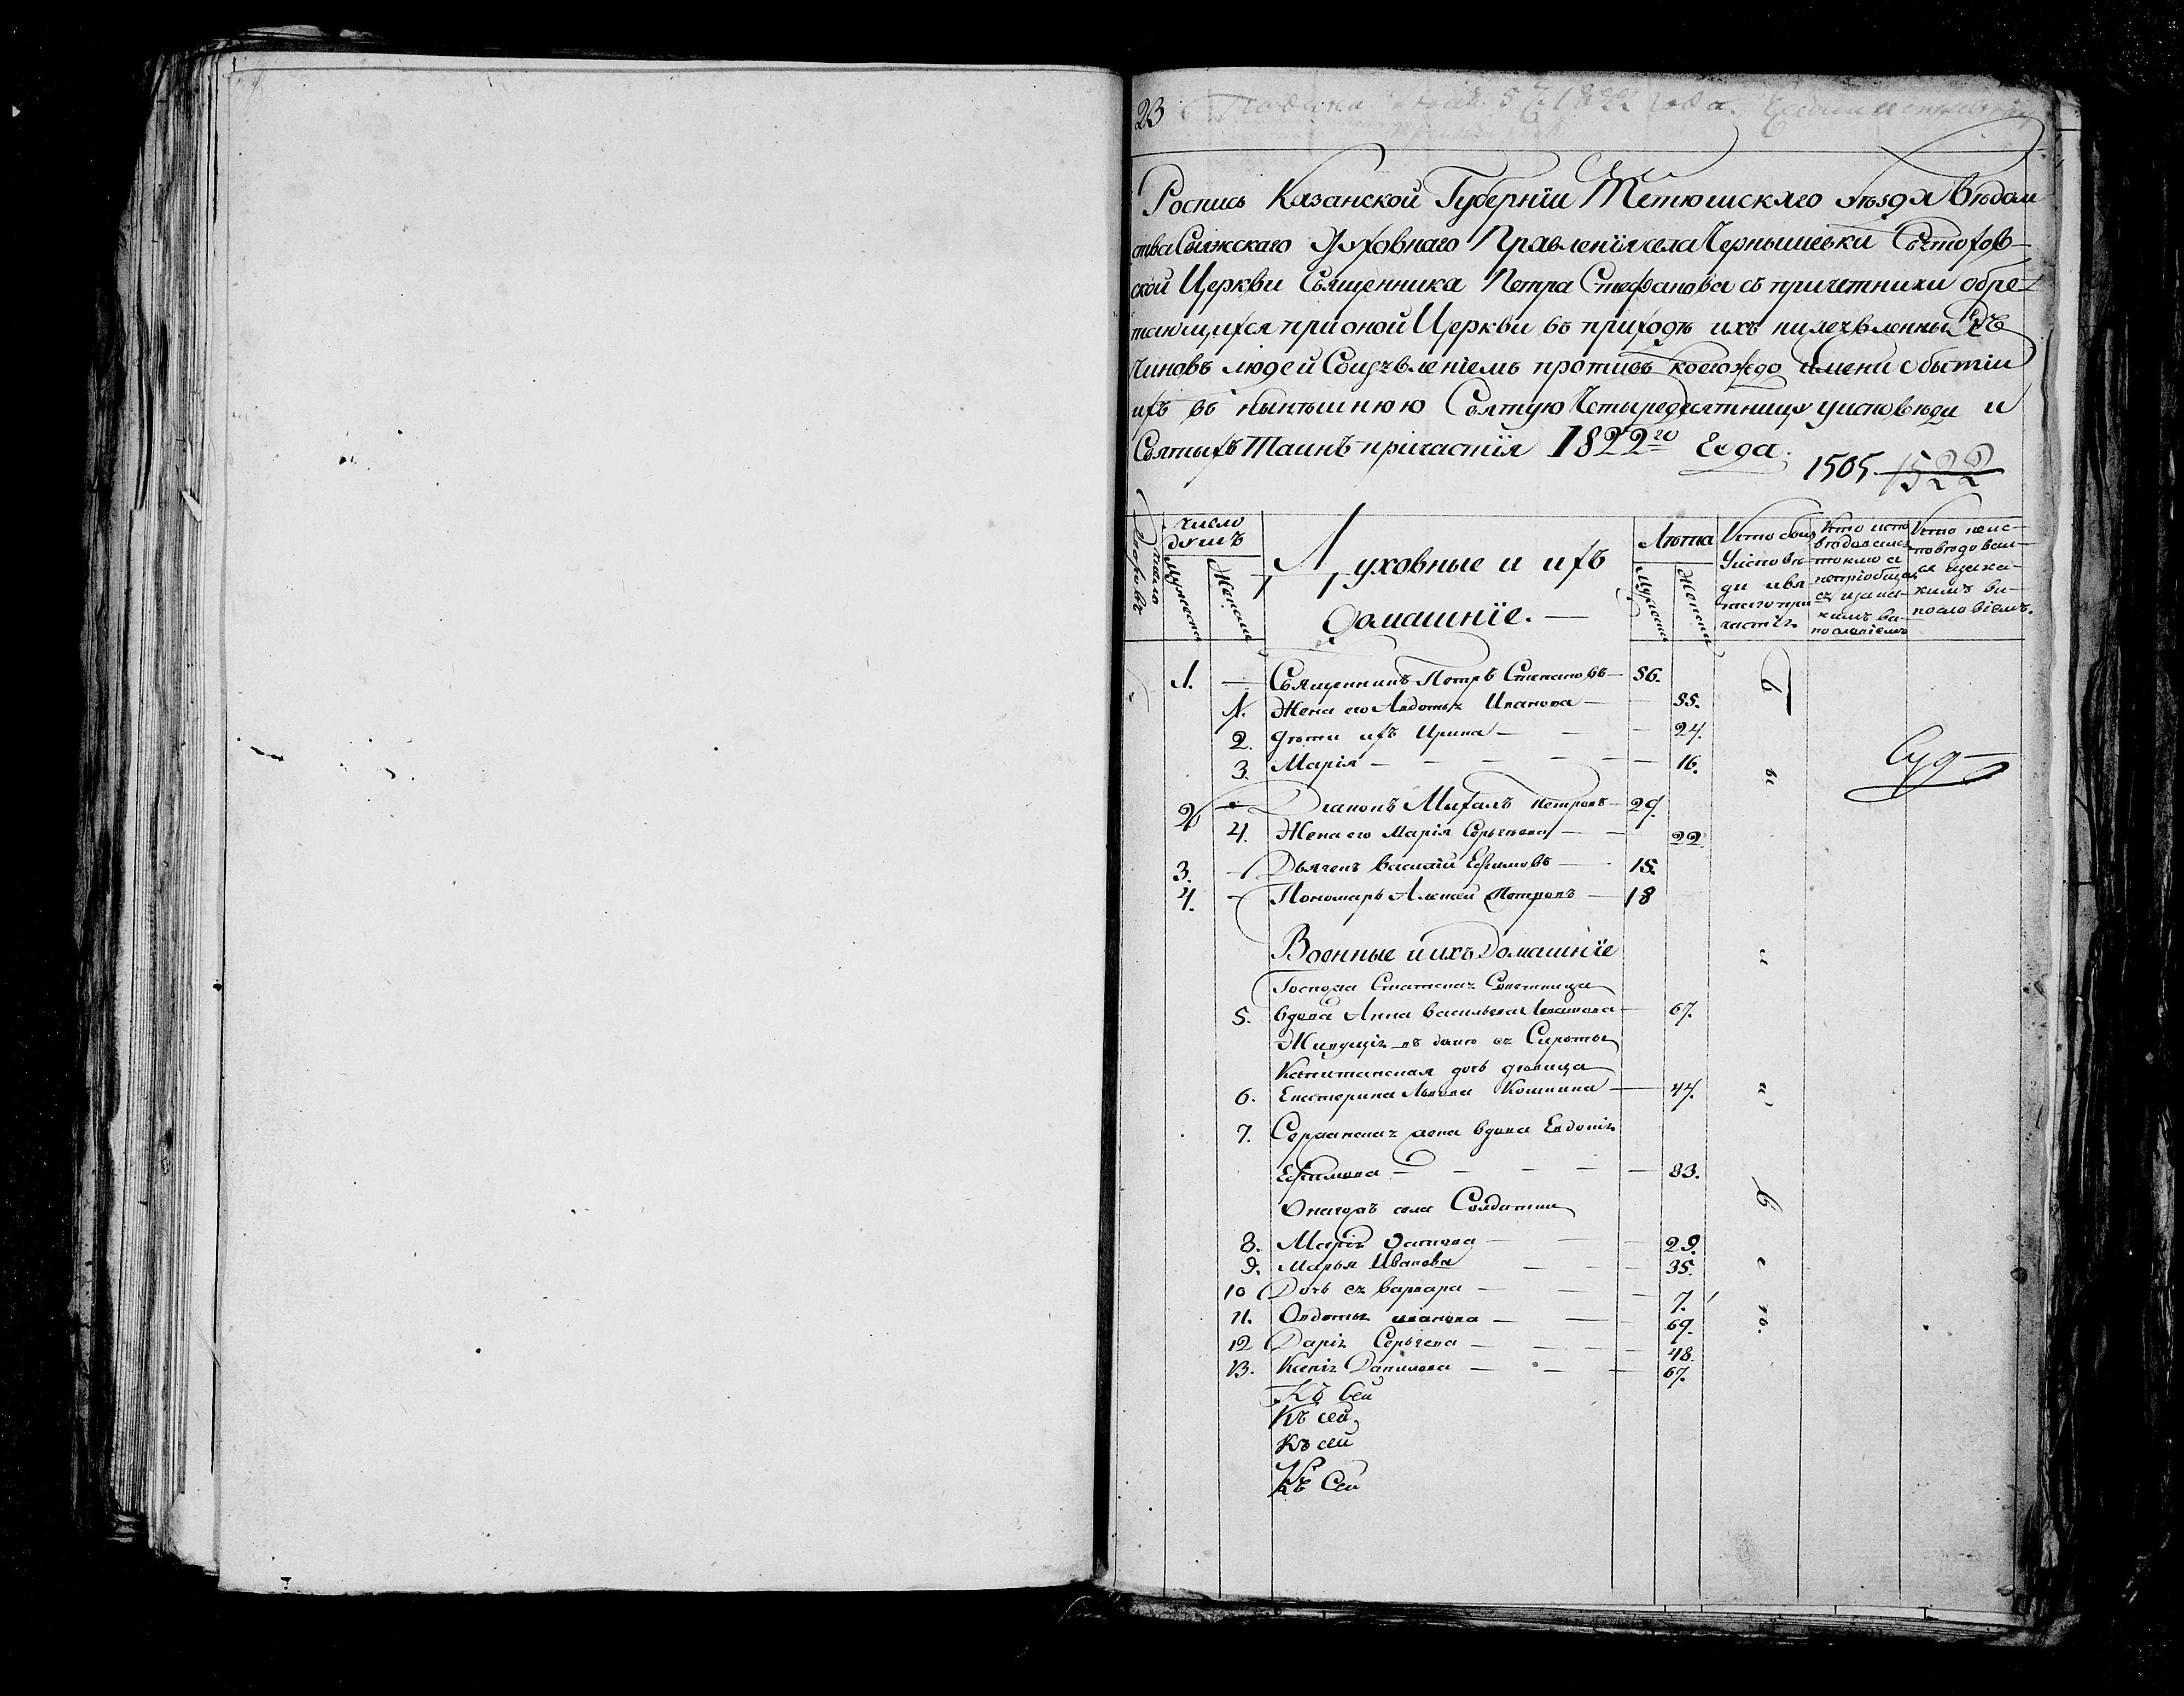 23
Роспись Казанской Губернїи Тетюшскаго уѣзда Вѣдом
ства Свіяжскаго Духовнаго Правленїя села Чернышевки Святодухов-
ской Церкви Священника Петра Стефанова съ причетники обре-
тающихся при оной Церкви въ приходѣ ихъ нижеявленныхъ
Чиновъ людей Съ изъявленїемъ противъ коегождо имени о бытїи
ихъ въ нынѣшнюю Святую Четыредесятницу у исповѣди и
Святыхъ Таинъ причастїя 1822го Года.
1505. 1522
Число Дворовъ
число душъ
Мужеска
Женска
Духовные и ихъ
домашнїе. —
Лѣта
Мужеска
Женска
Кто был у исповѣди и свя таго при частїя
Кто испо вѣдался токмо а не прїобщал
Кто не ис- повѣдовал- ся
1. — Священникъ Петръ Степановъ — 56.
1. Жена его Авдотья Иванова — 55.
2. Дѣти ихъ Ирина — 24.
3. Марія — 16.
2 — Діаконъ Михаилъ Петровъ — 29.
4. Жена его Марія Сергѣева — 22.
3. — Дьячекъ Василій Ефимовъ — 15.
4. — Пономарь Алексей Петровъ — 18
Военные и ихъ Домашнїе
Госпожа Статская Советница
5. Вдова Анна Васильева — 67.
Живущія въ доме ея Сироты
Капитанская дочь девица
6. Екатерина Львова — 44.
7. Сержанская жена вдова Евдокія
Ефимова — 83.
Онагожъ села Солдатки
8. Марія — 29.
9. Марья Иванова — 35.
10 Дочь ея Варвара — 7.
11. Овдотья Иванова — 69.
12 Дарія Сергеева — 48.
13. Ксенія Данилова — 67.
Къ сей
Къ сей
Къ сей
Къ Сей